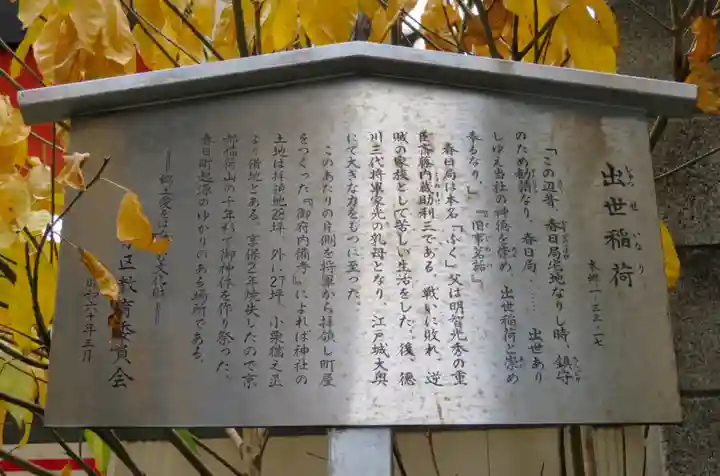 出世稲荷
しゅっせいなり
本郷一・三三・一七
「この辺昔、春日局拝地なりし時、鎮守
のため勧請なり、春日局、…… 出世あり
しゆえ当社の神徳を崇め、出世稲荷と崇め
来るなり。」 『旧事茗話』
春日局は本名「ふく」父は明智光秀の重
臣斎藤内蔵助利三である。戦いに敗れ、逆
賊の家族として苦しい生活をした。後、徳
川三代将軍家光の乳母となり、江戸城大奥
にて大きな力をもつに至った。
このあたりの片側を将軍から拝領し町屋
をつくった『御府内備考』によれば神社の
土地は拝領地28坪、外に27坪 小栗橋之丞
より借地とある。享保2年焼失したので京
都稲荷山の千年杉で御神体を作り祭った。
春日町起源のゆかりのある場所である。
―郷土愛をは 文化財―
区教育委員会
昭和六十年三月